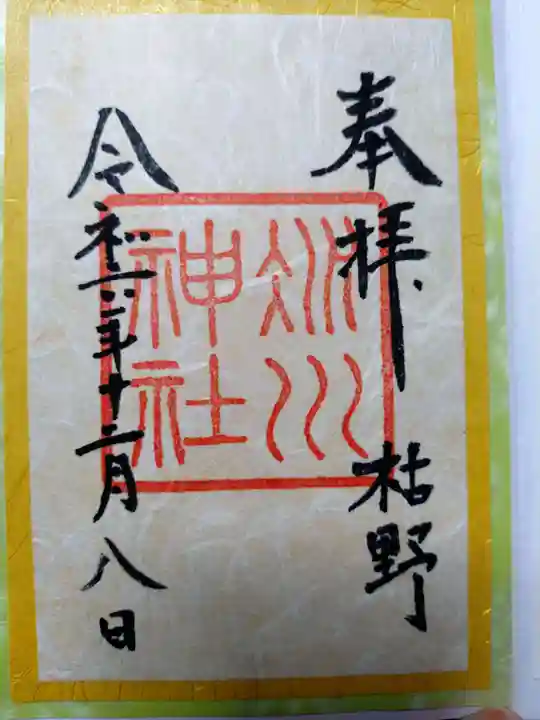 奉拝 枯野
川
神社
令和六年十二月八日